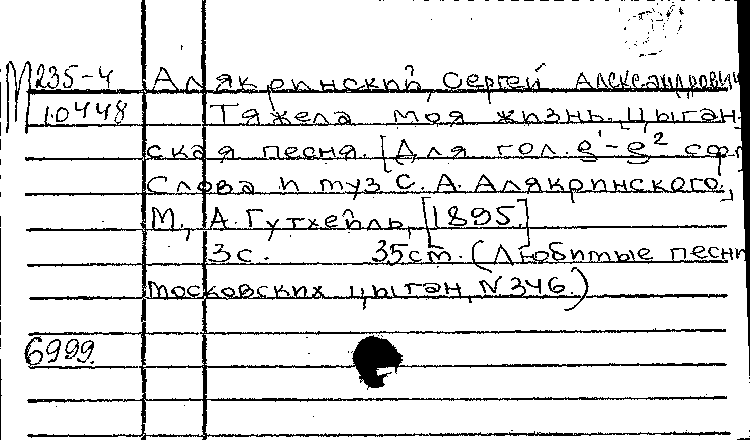 М 235-4 Алякринский, Сергей Александрович
10448 Тяжела моя жизнь. Цыган-
ская песня. [Для гол. e¹-g² сфп
Слова и муз С. А. Алякринского.]
М., А. Гутхейль, [1895.]
3с. 35см. (Любимые песни
московских цыган, N 346.)
6999.